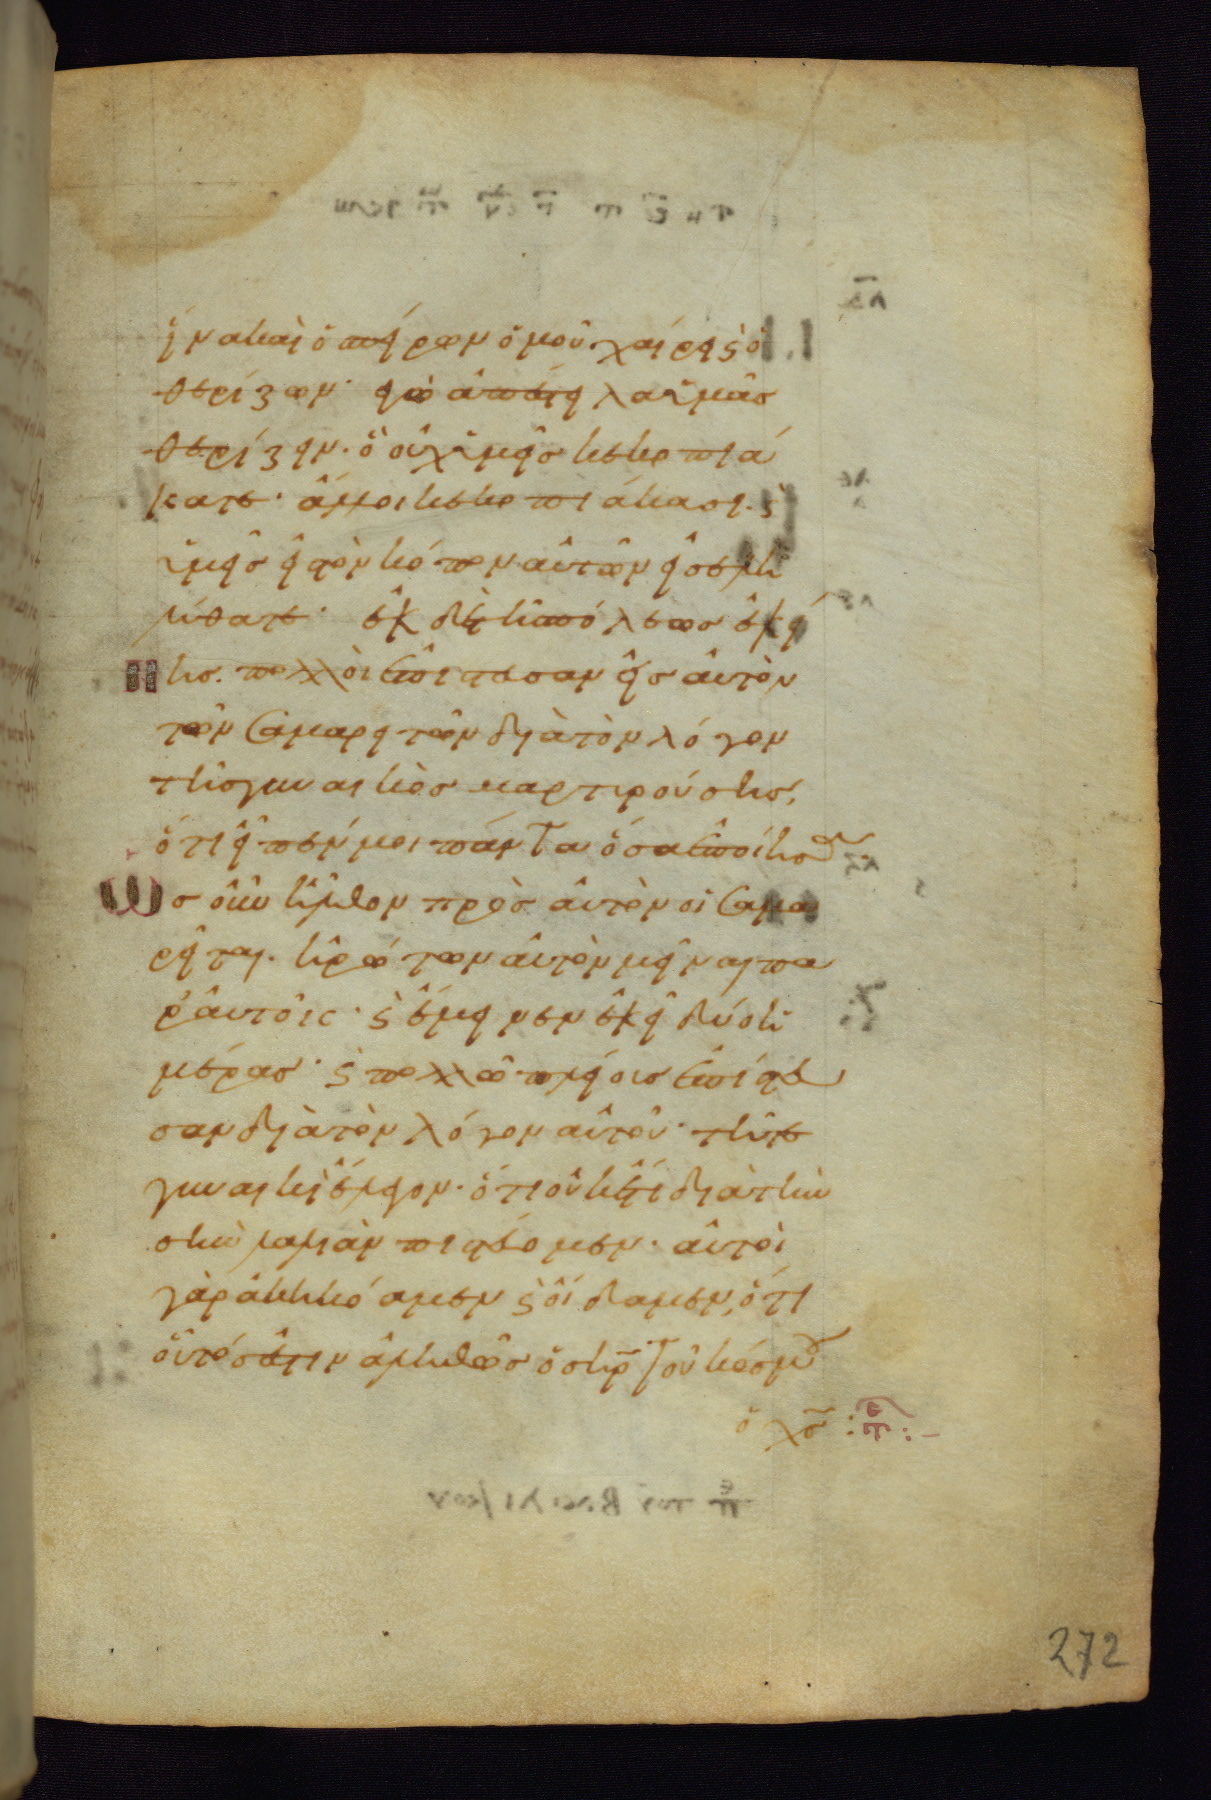 ἵνα καὶ ὁ σπείρων ὁμοῦ χαίρει ϛ ὁ
θερίζων· ἐγὼ ἀπέστειλα ὑμᾶσ
θερίζειν· ὃ οὐχ ὑμεῖσ κεκοπιά
κατε· ἄλλοι κεκοπιάκασι· ϛ
ὑμεῖσ εἰς τὸν κόπον αὐτῶν εἰσελη
λύθατε· ἐκ δὲ τῆς πόλεωσ ἐκεί
νησ. πολλοὶ ἐπίστευσαν εἰσ αὐτὸν
τῶν Σαμαρειτῶν διὰ τὸν λόγον
τῆσ γυναικὸσ μαρτυρούσησ,
ὅτι εἶπέν μοι πάντα ὅσα ἐποίησα
Ὡσ οὖν ἦλθον πρὸσ αὐτὸν οἱ Σαμα
ρεῖται. ἠρώτων αὐτὸν μεῖναι πα
ρ᾽ αὐτοῖς· ϛ ἔμεινεν ἐκεῖ δύο ἡ
μέρασ· ϛ πολλῷ πλείουσ ἐπίστευ
σαν διὰ τὸν λόγον αὐτοῦ· τῇ τε
γυναικὶ ἔλεγον· ὅτι οὐκέτι διὰ τὴν
σὴν λαλιὰν πιστεύομεν· αὐτοὶ
γὰρ ἀκηκόαμεν ϛ οἴδαμεν, ὅτι
οὗτόσ ἐστιν ἀληθῶσ ὁ σηρ τοῦ κόσμου
ὁ χσ
272